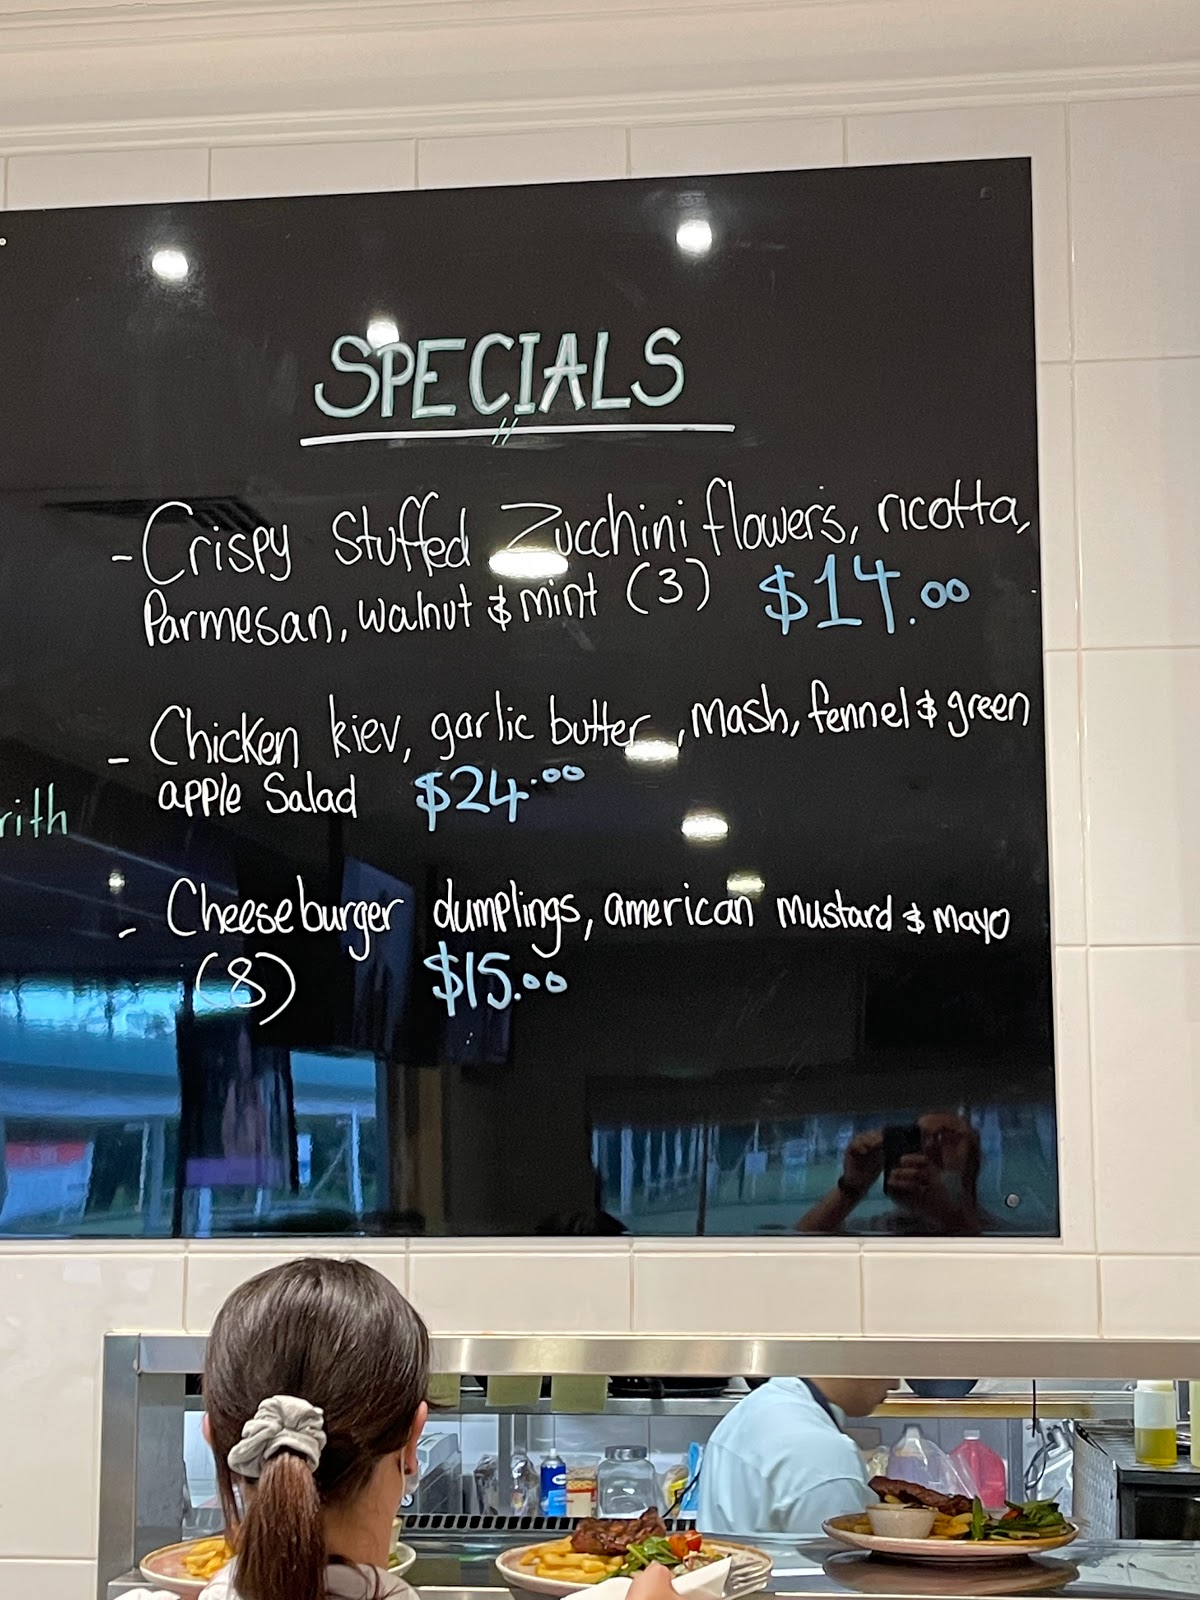 SPECIALS
- Crispy Stuffed Zucchini flowers, ricotta,
Parmesan, walnut & mint (3) $14.00
- Chicken kiev, garlic butter, mash, fennel & green
apple Salad $24.00
rith
- Cheeseburger dumplings, american mustard & mayo
(8) $15.00